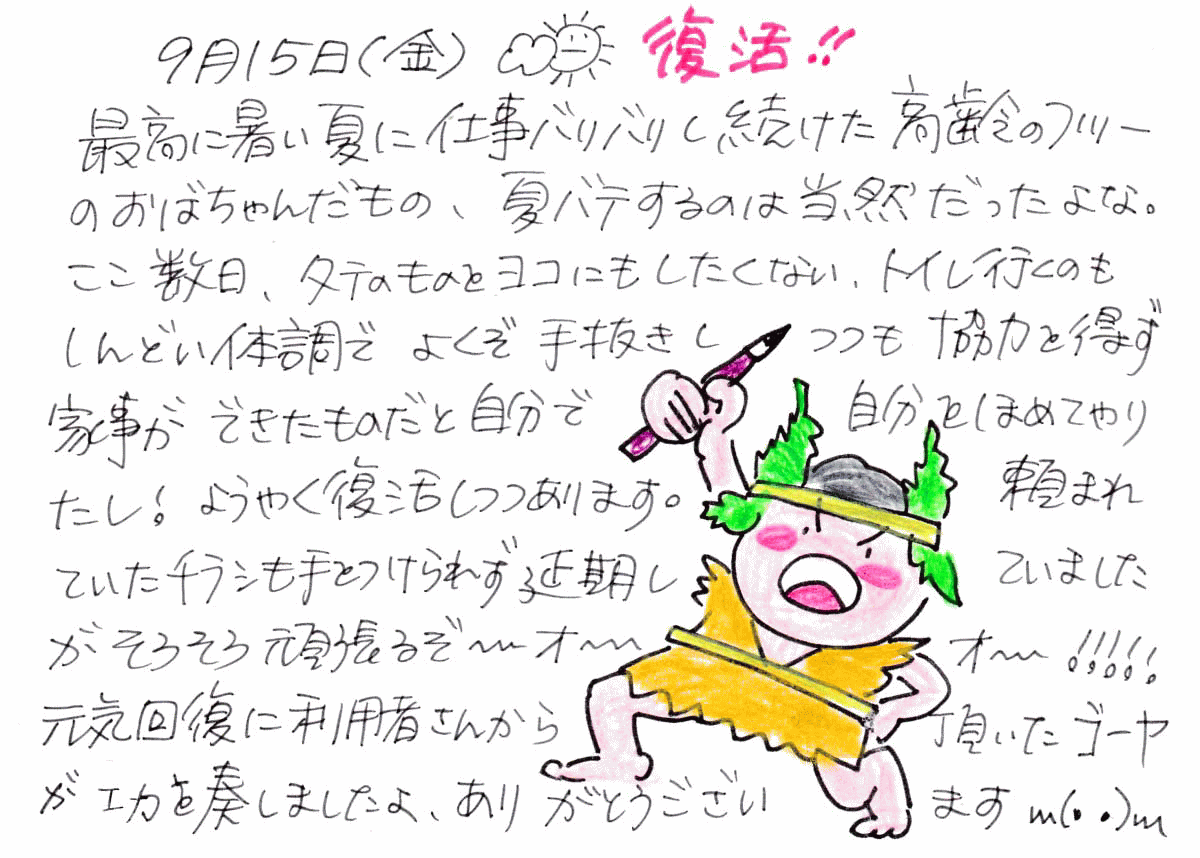 9月15日(金) 復活!!
最高に暑い夏に仕事バリバリし続けた高齢のフリー
のおばちゃんだもの、夏バテするのは当然だったよな。
ここ数日、タテのものをヨコにもしたくない、トイレ行くのも
しんどい体調で よくぞ 手抜きし つつも 協力を得ず
家事が できたものだと自分で 自分をほめてやり
たし! ようやく復活しつつあります。 頼まれ
ていたチラシも手をつけられず延期し ていました
がそろそろ頑張るぞ〜オ〜 オ〜!!!!!
元気回復に利用者さんから 頂いたゴーヤ
がエ力を奏しましたよ、ありがとうござい ます m(・・)m